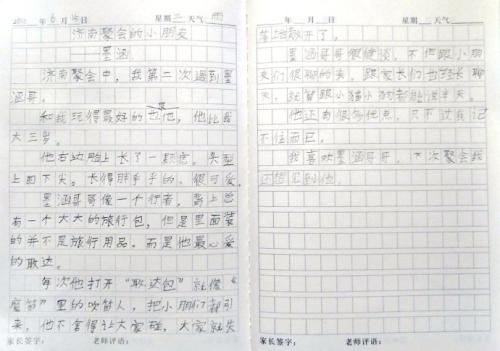 年6月15日 星期三 天气 雨
济南聚会的小朋友
——墨涵
济南聚会中，我第二次遇到墨
涵哥。
是
和我玩得最好的也他，他比我
大三岁。
他右边脸上长了一颗痣，头型
上圆下尖。长得胖乎乎的，很可爱。
墨涵哥哥像一个行者，背上总
有一个大大的旅行包，但是里面装
的并不是旅行用品，而是他最心爱
的歌达。
每次他打开“歌达包”就像“
魔笛”里的吹笛人，把小朋友们都引
来，他不舍得让大家碰，大家就失
家长签字： 老师评语：
年 月 日 星期 天气
落地散开了。
墨涵哥哥很健谈，不但跟小朋
友们很聊的来，跟家长们也经常聊
天，就算跟小猫小狗都能说半天。
他还有很多优点，只不过我记
不住而已。
我喜欢墨涵哥哥，下次聚会我
还想见到他。
家长签字： 老师评语：